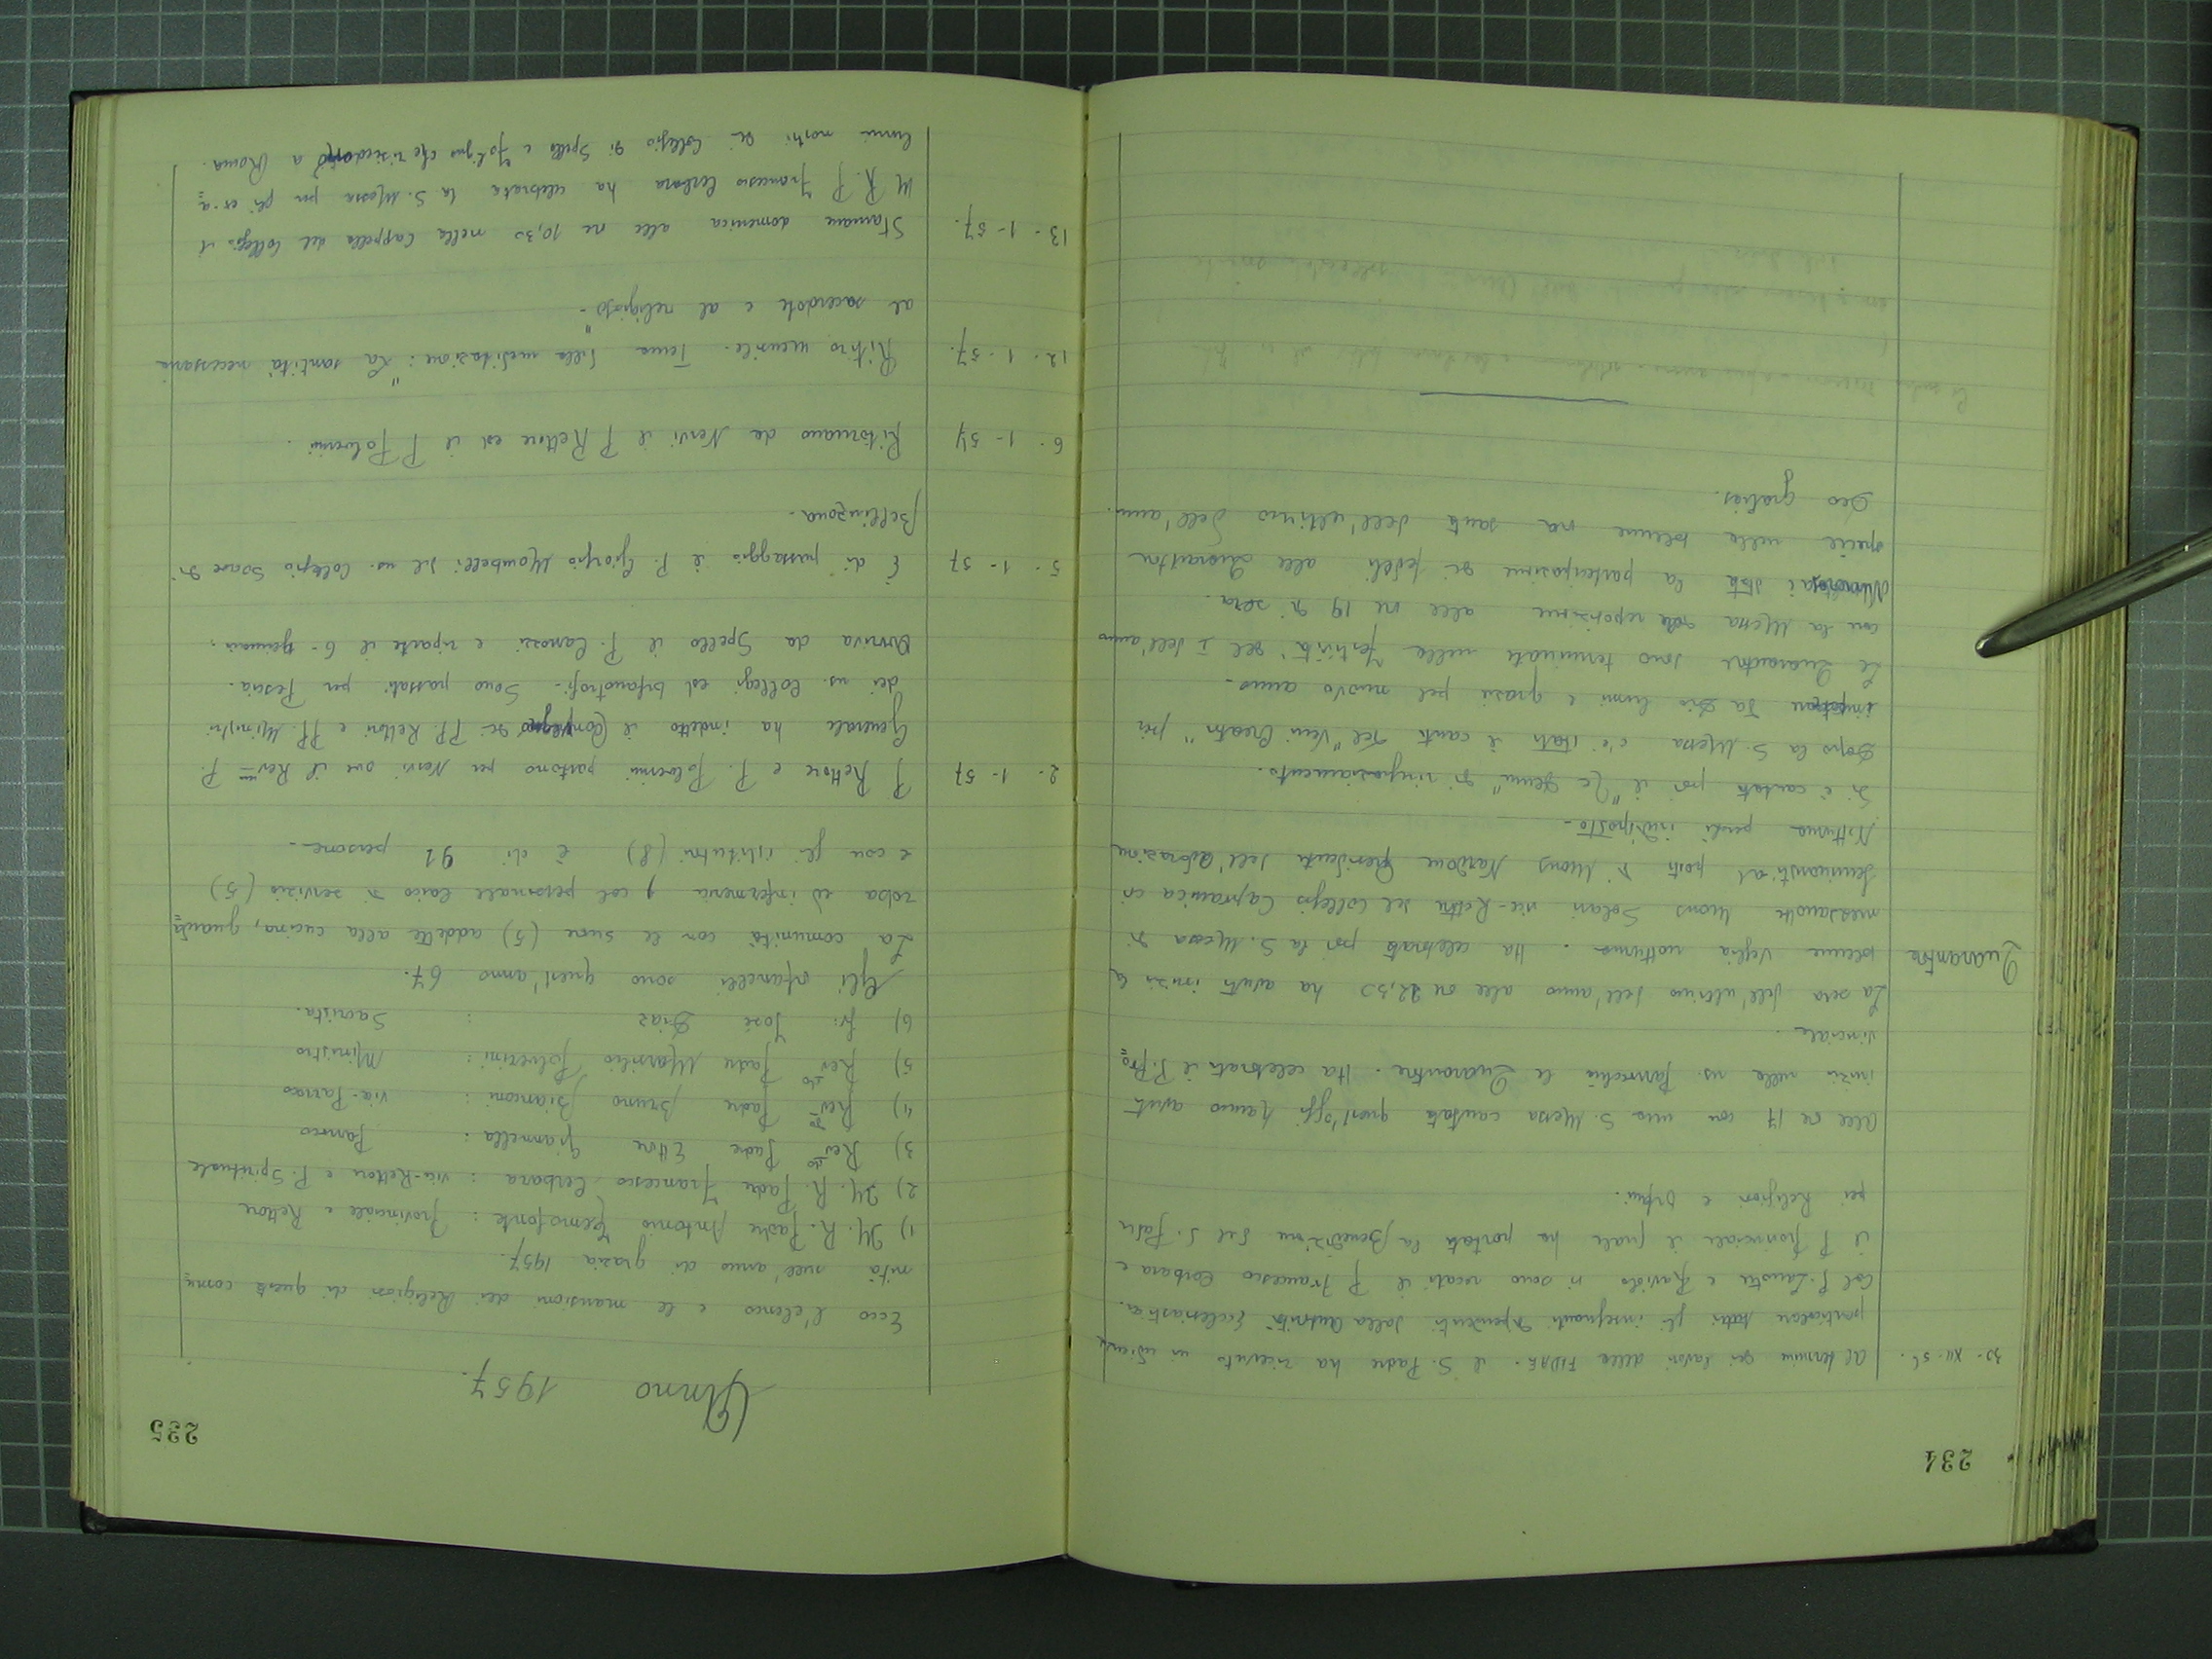 234
30-XII-56. Al termine dei lavori della FIDAE. il S. Padre ha ricevuto in udienza
particolare tutti gli insegnanti dipendenti dalla autorità Ecclesiastica.
Col P. e si sono recati il P. Francesco Cerbara e
il P. Provinciale il quale ha portato la Benedizione del S. Padre
pei Religiosi e Orfani.
Alle ore 17 con una S. Messa cantata quest'oggi hanno avuto
inizio nella ns. Parrocchia le Quarantore. Ha celebrato il P. Pro=
vinciale.
La sera dell'ultimo dell'anno alle ore 22,30 ha avuto inizio la
Quarantore solenne veglia notturna. Ha celebrato poi la S. Messa di
mezzanotte Mons Solari vice-Rettore del Collegio Capranica coi
Seminaristi al posto di Mons Nardone Presidente dell'Adorazione
Notturna perchè indisposto-
Si è cantato poi il "Te Deum" di ringraziamento.
Dopo la S. Messa c'è stato il canto del "Veni Creator" per
impetrare da Dio lumi e grazie pel nuovo anno-
Le Quarantore sono terminate nella festività del I dell'anno
con la Messa reposizione alle ore 19 di sera.
Numerosa è stata la partecipazione di fedeli alle Quarantore
specie nella solenne ora santa dell'ultimo dell'anno.
Deo gratias.
235
Anno 1957.
Ecco l'elenco e le mansioni dei Religiosi di questa comu=
nità nell'anno di grazia 1957.
1) M. R. Padre Antonio Temofonte : Provinciale e Rettore
2) M. R. Padre Francesco Cerbara : vice-Rettore e P. Spirituale
3) Revdo Padre Ettore Giannella : Parroco
4) Revdo Padre Bruno Bianconi : vice-Parroco
5) Revdo Padre Marsilio Polverini : Ministro
6) fr. José Diaz : Sacrista.
Gli orfanelli sono quest'anno 67.
La comunità con le suore (5) addette alla cucina, guarda=
roba ed infermeria, col personale laico di servizio (5)
e con gli istitutori (8) è di 91 persone-
2-1-57 P. Rettore e P. Polverini partono per Nervi ove il Revmo P.
Generale ha indetto il Convegno di PP. Rettori e PP. Ministri
dei ns. Collegi ed orfanotrofi. Sono passati per Pescia.
Arriva da Spello il P. Canossi e riparte il 6-gennaio.
5-1-57 È di passaggio il P. Giorgio Mombelli del ns. Collegio Soave di
Bellinzona-
6-1-57 Ritornano da Nervi il P. Rettore ed il P. Polverini.
12-1-57. Ritiro mensile. Tema della meditazione: "La santità necessaria
al sacerdote e al religioso"-
13-1-57. Stamane domenica alle ore 10,30 nella Cappella del Collegio il
M. R. P. Francesco Cerbara ha celebrato la S. Messa per gli ex-a=
lunni nostri di Collegio di Spello e Foligno che risiedono a Roma.